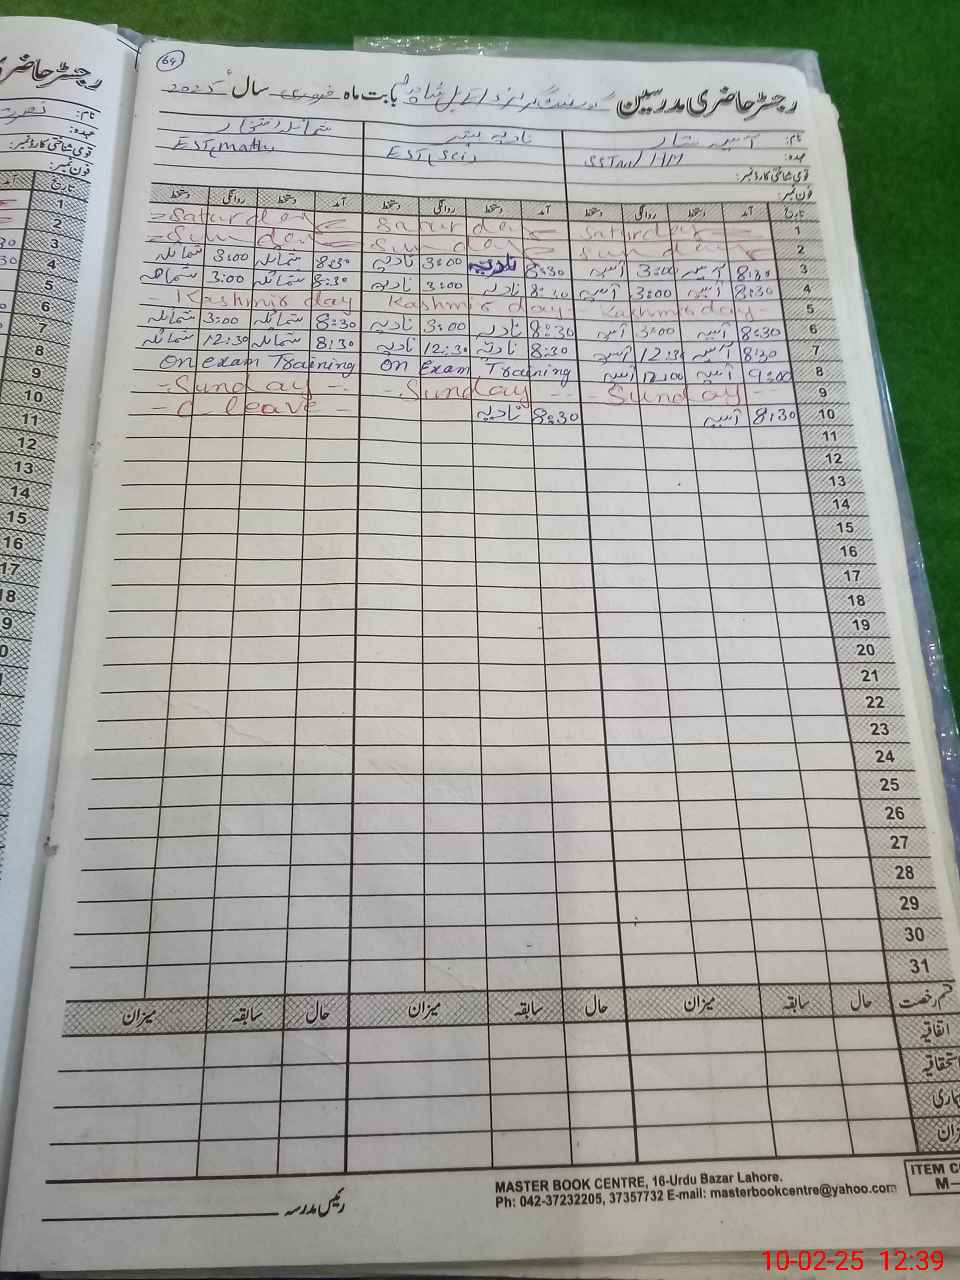 64
رجسٹر حاضری مدرسین گورنمنٹ گرلز بابت ماہ فروری سال 2025ء
نام: آسیہ ستار نادیہ بشیر شمائلہ افتخار
عہدہ: SST(M)/HM EST(Sci) EST(Math)
قومی شناختی کارڈ نمبر:
فون نمبر:
تاریخ آمد دستخط روانگی دستخط آمد دستخط روانگی دستخط آمد دستخط روانگی دستخط
1 Saturday Saturday Saturday
2 Sunday Sunday Sunday
3 8:30 آسیہ 3:00 آسیہ 8:30 نادیہ 3:00 نادیہ 8:30 شمائلہ 3:00 شمائلہ
4 8:30 آسیہ 3:00 آسیہ 8:30 نادیہ 3:00 نادیہ 8:30 شمائلہ 3:00 شمائلہ
5 Kashmir day Kashmir day Kashmir day
6 8:30 آسیہ 3:00 آسیہ 8:30 نادیہ 3:00 نادیہ 8:30 شمائلہ 3:00 شمائلہ
7 8:30 آسیہ 12:30 آسیہ 8:30 نادیہ 12:30 نادیہ 8:30 شمائلہ 12:30 شمائلہ
8 9:00 آسیہ 12:00 آسیہ On Exam Training On exam Training
9 Sunday Sunday Sunday
10 8:30 آسیہ 8:30 نادیہ C leave
11
12
13
14
15
16
17
18
19
20
21
22
23
24
25
26
27
28
29
30
31
قسم رخصت حال سابقہ میزان حال سابقہ میزان حال سابقہ میزان
اتفاقیہ
استحقاقیہ
بیماری
میزان
رئیس مدرسہ
MASTER BOOK CENTRE, 16-Urdu Bazar Lahore.
Ph: 042-37232205, 37357732 E-mail: masterbookcentre@yahoo.com
ITEM C
M-
رجسٹر حاضری
نام:
عہدہ:
قومی شناختی کارڈ نمبر:
فون نمبر:
تاریخ آمد
1
2
3
4
5
6
7
8
9
10
11
12
13
14
15
16
17
18
9
0
10-02-25 12:39